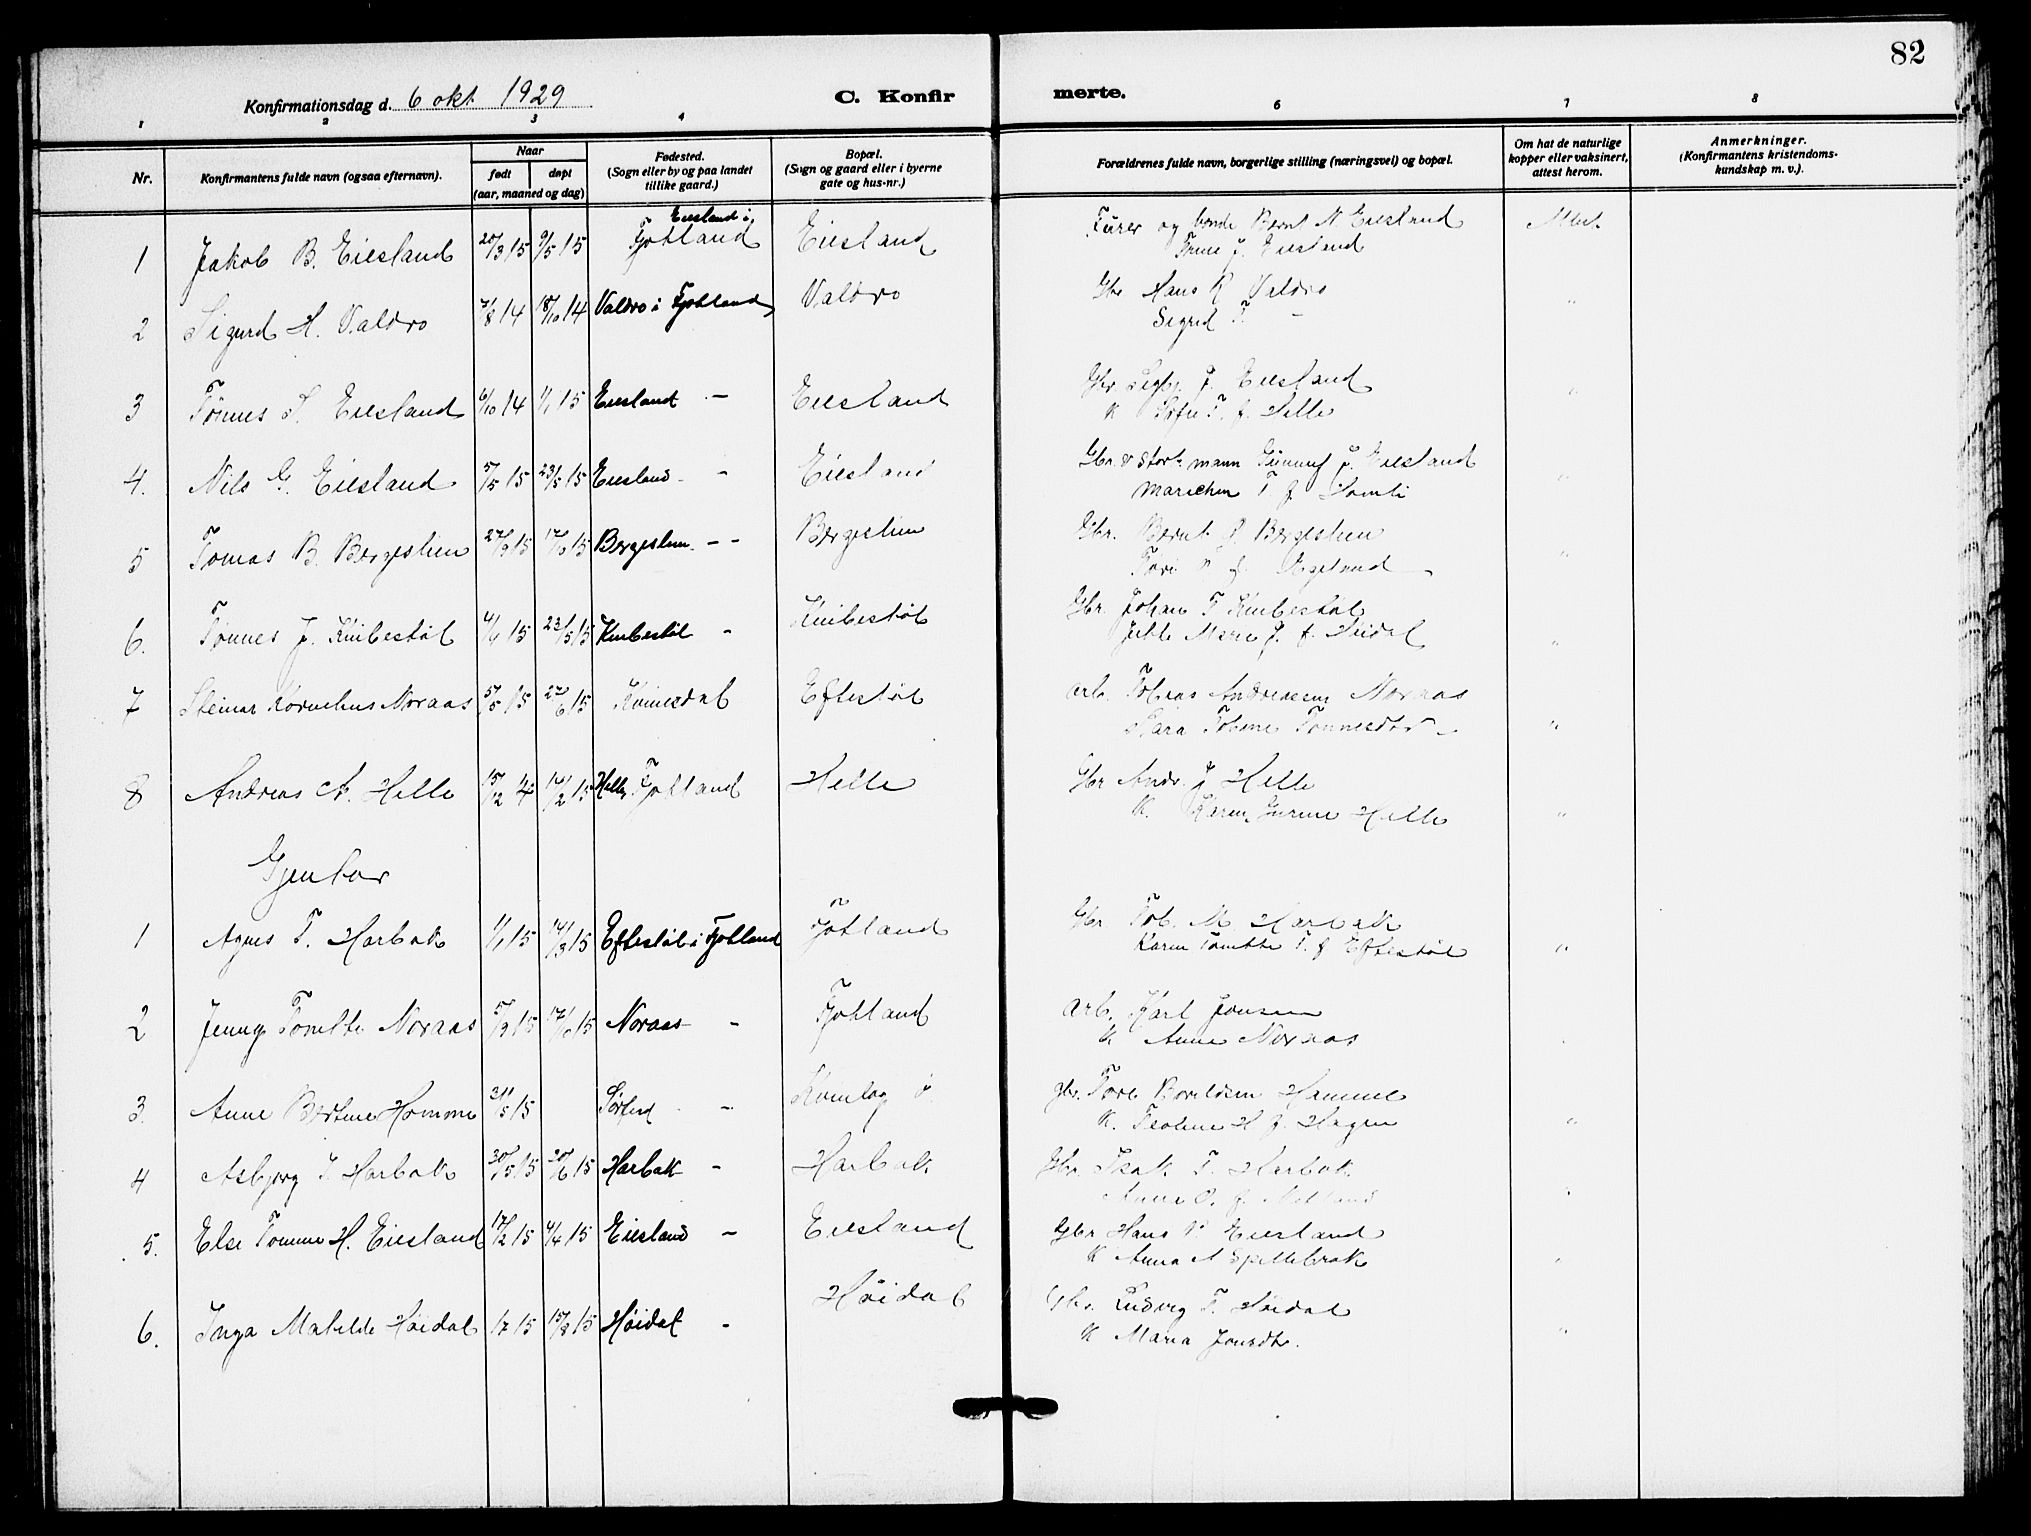 82
Konfirmationsdag d. 6 okt 1929 C. Konfirmerte.
1 2 3 4 6 7 8
Nr. Konfirmantens fulde navn (ogsaa efternavn). Naar født døpt (aar, maaned og dag) Fødested. (Sogn eller by og paa landet tillike gaard.) Bopæl. (Sogn og gaard eller i byerne gate og hus-nr.) Forældrenes fulde navn, borgerlige stilling (næringsvei) og bopæl. Om hat de naturlige kopper eller vaksinert, attest herom. Anmerkninger. (Konfirmantens kristendomskundskap m. v.).
1 Jakob B. Eiesland 20/3 15 9/5 15 Eiesland i Fjotland Eiesland og bonde Bernt N Eiesland
J. Eiesland
2 Sigurd H. Valdro 7/8 14 18/10 14 Valdro i Fjotland Valdro Gbr Hans R Valdro "
Sigrid T. -
3 Tønnes S. Eiesland 6/10 14 1/1 15 Eiesland - Eiesland Gbr. J. Eiesland "
K T. f. Helle
4. Nils G. Eiesland 5/5 15 23/5 15 Eiesland - Eiesland Gbr. & mann J. Eiesland "
T f.
5 Tomas B. Bergestien 27/9 15 17/10 15 Bergestien - - Bergestien Gbr. Bernt Bergestien "
f.
6. Tønnes J. Knibestøl 4/4 15 23/5 15 Knibestøl - Knibestøl Gbr. Johan T Knibestøl "
J. f.
7 Steinar Kornelius Noraas 5/5 15 27/6 15 Kvinesdal Eftestøl arb. Tobias Andreassen Noraas "
Sara Tobine Tønnesdtr -
8 Andreas A. Helle 15/12 14 14/2 15 Helle, Fjotland Helle Gbr Andr. J Helle "
K. Karen Helle
Gjenter
1 Agnes T. Harbak 1/1 15 14/3 15 Eftestøl i Fjotland Fjotland Gbr Tob. M. Harbak "
Karen Tomette T. f Eftestøl
2 Jenny Tomette Noraas 5/9 15 17/10 15 Noraas - Fjotland arb. Karl Jonsen
K Anne Noraas
3. Anne Bertine Homme 31/5 15 - Gbr. Tore "
K. H f. Hagen
4 Asbjørg I. Harbak 30/5 15 20/6 15 Harbak - Harbak Gbr. Isak T. Harbak "
Anne O. f.
5. Else Tomine H. Eiesland 17/2 15 4/4 15 Eiesland - Eiesland Gbr Hans Eiesland "
K Anna A Spillebrok
6. Inga Matilde Høidal 1/7 15 15/8 15 Høidal - Høidal Gbr. Ludvig T. Høidal "
K Maria Jonsdtr.